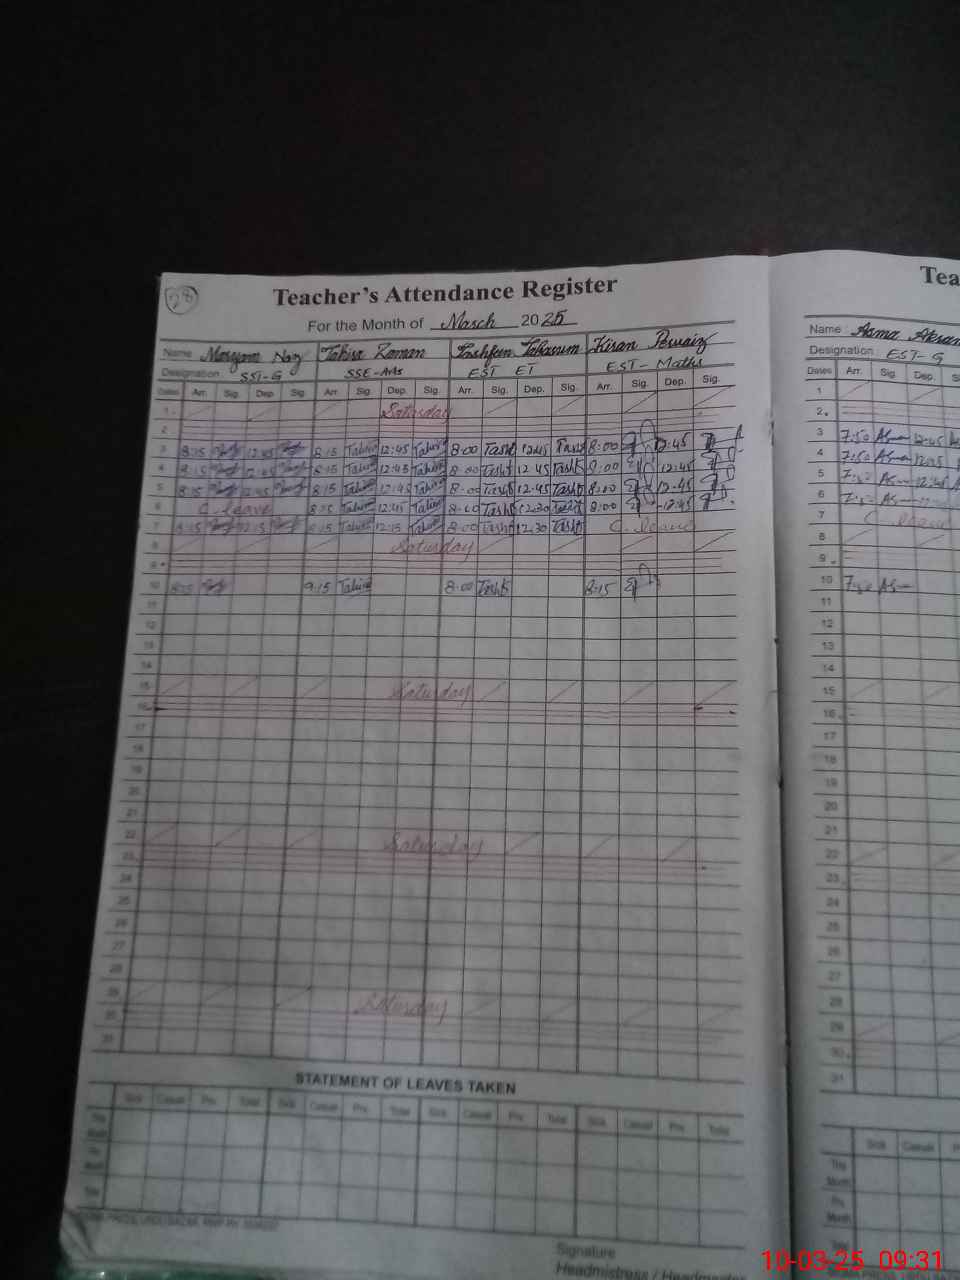 28
Teacher's Attendance Register
For the Month of March 2025
Name Maryam Naz Tahira Zaman Tashfeen Tabassum Kiran Pervaiz
Designation SST-G SSE-Arts EST ET EST-Maths
Dates Arr. Sig. Dep. Sig. Arr. Sig. Dep. Sig. Arr. Sig. Dep. Sig. Arr. Sig. Dep. Sig.
1 Saturday
2
3 8:15 12:45 8:15 Tahira 12:45 Tahira 8:00 Tashf 12:45 Tashf 8:00 12:45
4 8:15 12:45 8:15 Tahira 12:45 Tahira 8:00 Tashf 12:45 Tashf 8:00 12:45
5 8:15 12:45 8:15 Tahira 12:45 Tahira 8:00 Tashf 12:45 Tashf 8:00 12:45
6 C. leave 8:15 Tahira 12:45 Tahira 8:00 Tashf 12:30 Tashf 8:00 12:45
7 8:15 12:15 8:15 Tahira 12:15 Tahira 8:00 Tashf 12:30 Tashf C. leave
8 Saturday
9
10 8:15 9:15 Tahira 8:00 Tashf 8:15
11
12
13
14
15 Saturday
16
17
18
19
20
21
22 Saturday
23
24
25
26
27
28
29 Saturday
30
31
STATEMENT OF LEAVES TAKEN
Sick Casual Prv. Total Sick Casual Prv. Total Sick Casual Prv. Total Sick Casual Prv. Total
This Month
Prv. Month
Total
Signature
Headmistress / Headmaster
Tea
Name : Asma Akram
Designation EST-G
Dates Arr. Sig. Dep. S
1
2
3 7:50 Asma 12:45
4 7:50 Asma 12:45
5
6
7 C leave
8
9
10 7:50 As
11
12
13
14
15
16
17
18
19
20
21
22
23
24
25
26
27
28
29
30
31
Sick Casual P
This Month
Prv. Month
Total
10-03-25 09:31